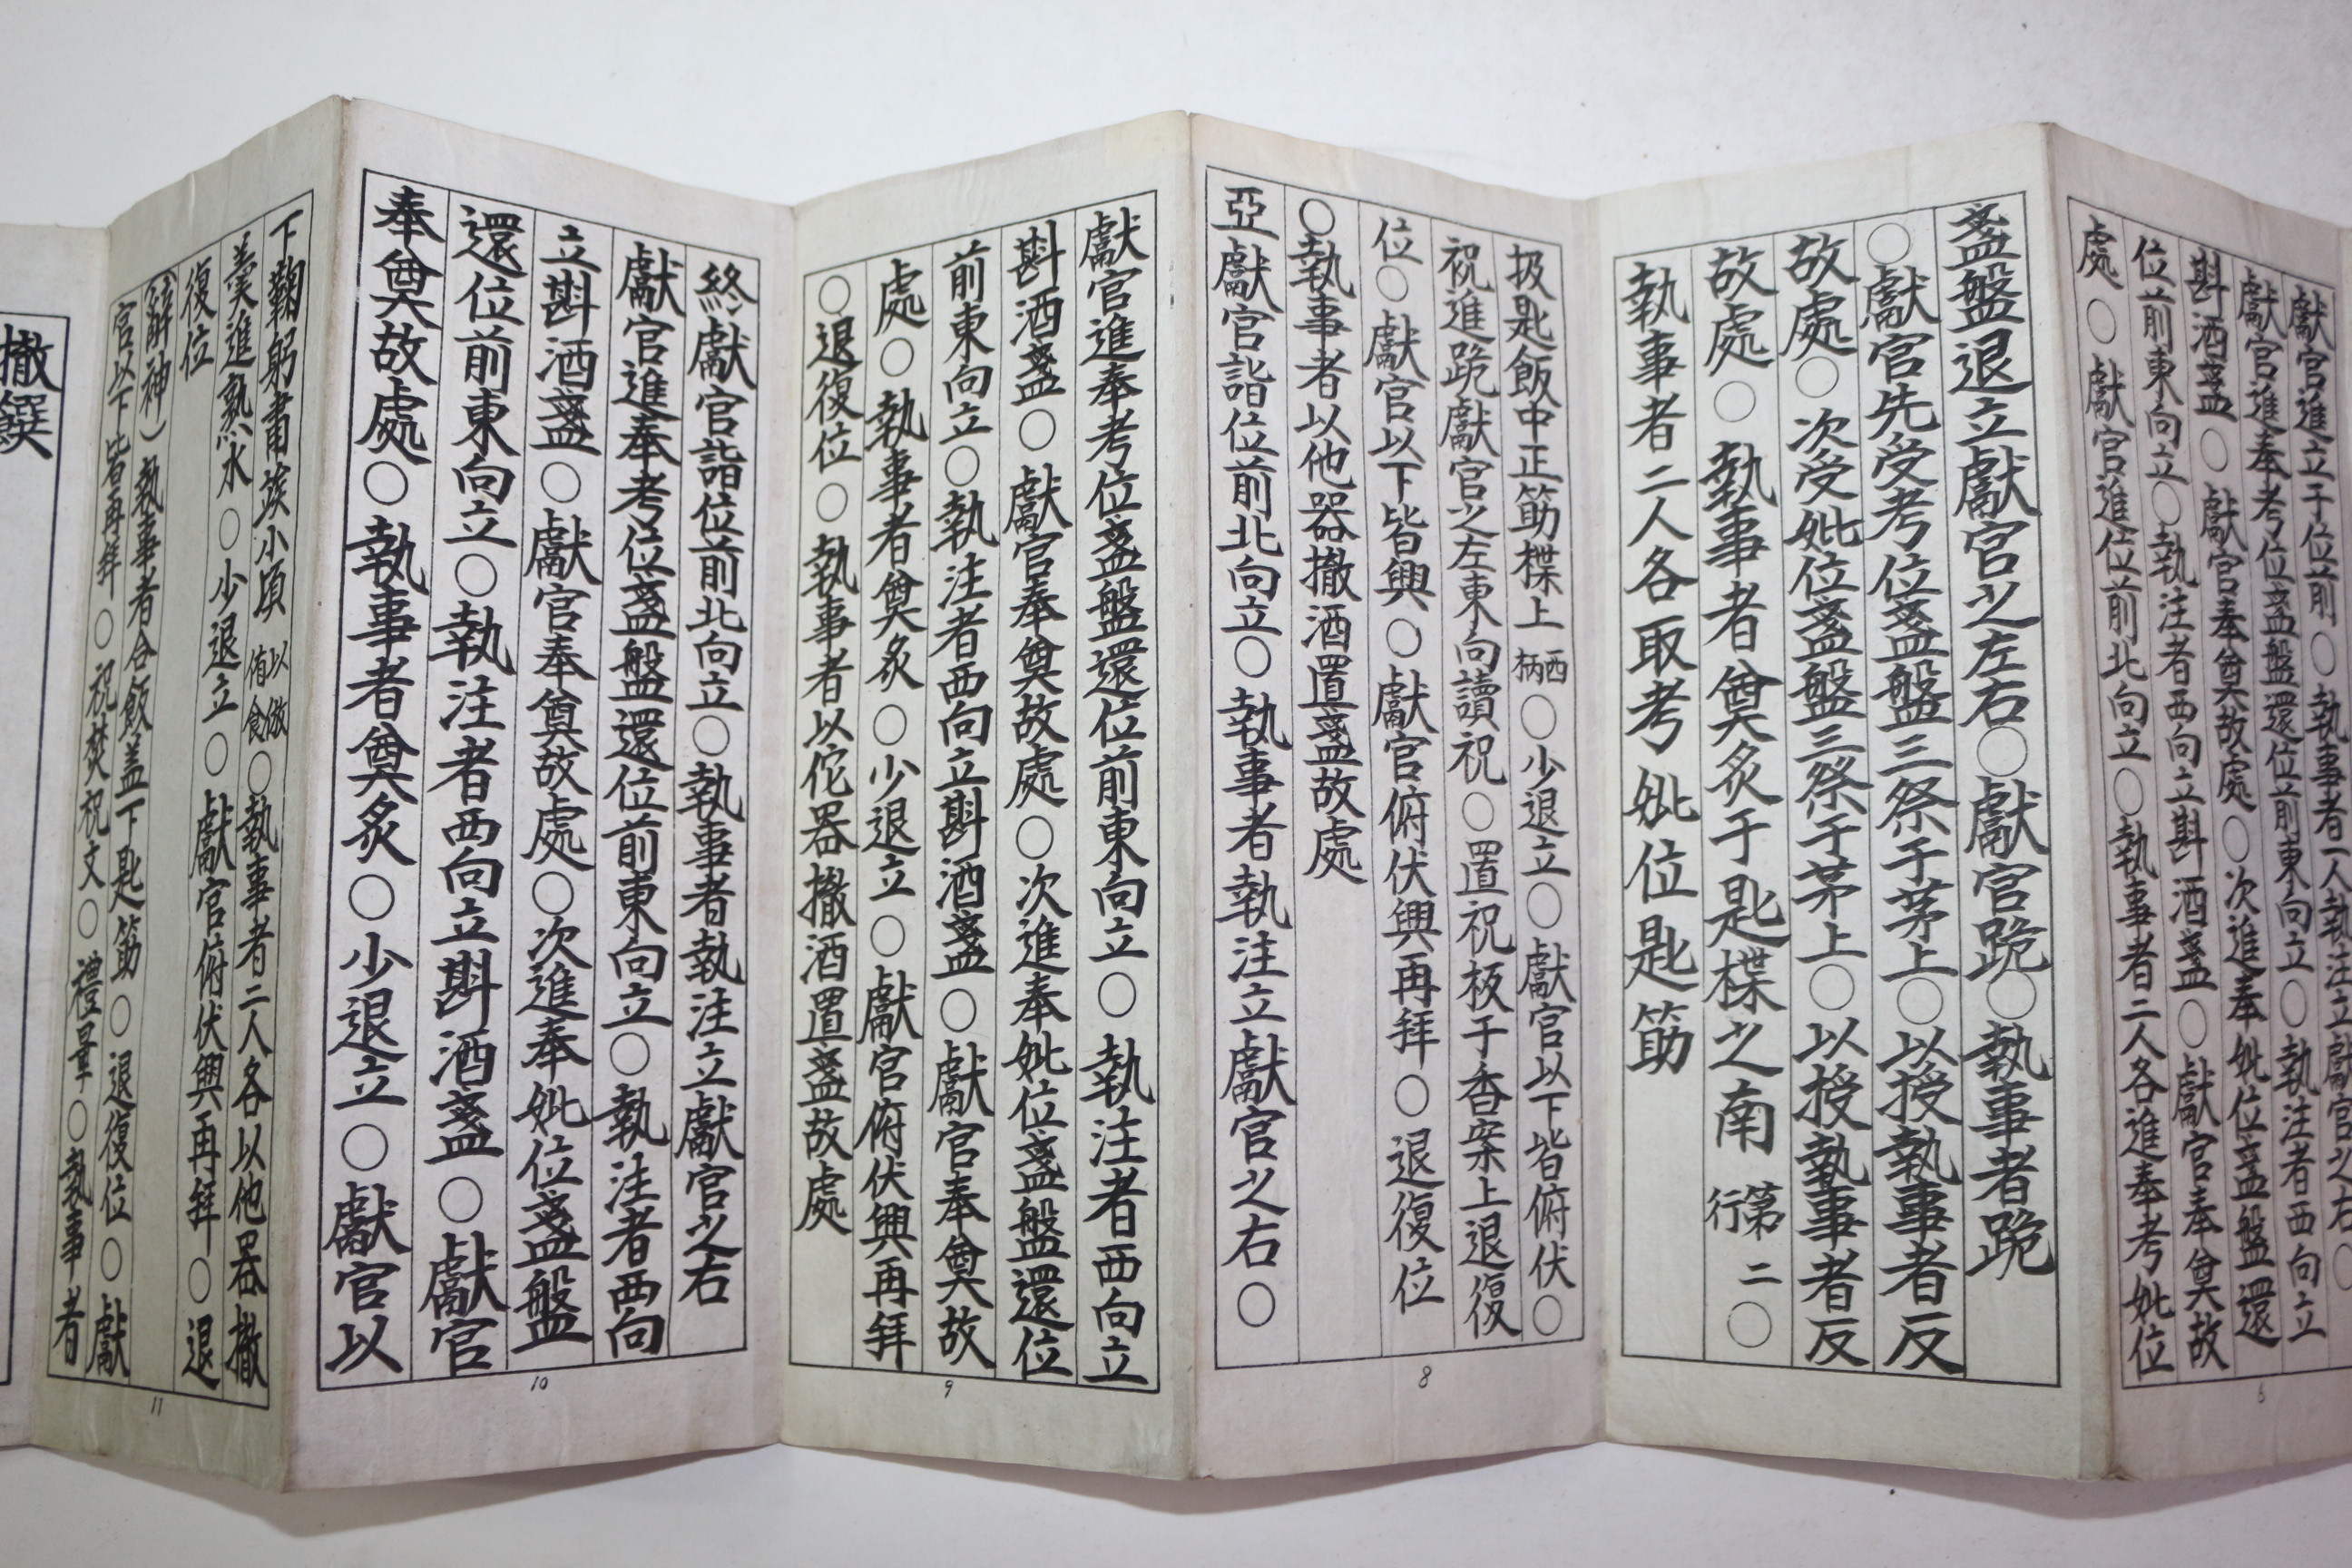 獻官進立于位前○執事者一人執注立獻官之右○
獻官進奉考位盞盤還位前東向立○執注者西向立
斟酒盞○獻官奉奠故處○次進奉妣位盞盤還
位前東向立○執注者西向立斟酒盞○獻官奉奠故
處○獻官進位前北向立○執事者二人各進奉考妣位
6
盞盤退立獻官之左右○獻官跪○執事者跪
○獻官先受考位盞盤三祭于茅上○以授執事者反
故處○次受妣位盞盤三祭于茅上○以授執事者反
故處○執事者奠炙于匙楪之南 第二行○
執事者二人各取考妣位匙筯
扱匙飯中正筯楪上 西柄○少退立○獻官以下皆俯伏○
祝進跪獻官之左東向讀祝○置祝板于香案上退復
位○獻官以下皆興○獻官俯伏興再拜○退復位
○執事者以他器撤酒置盞故處
亞獻官詣位前北向立○執事者執注立獻官之右○
8
獻官進奉考位盞盤還位前東向立○執注者西向立
斟酒盞○獻官奉奠故處○次進奉妣位盞盤還位
前東向立○執注者西向立斟酒盞○獻官奉奠故
處○執事者奠炙○少退立○獻官俯伏興再拜
○退復位○執事者以佗器撤酒置盞故處
9
終獻官詣位前北向立○執事者執注立獻官之右
獻官進奉考位盞盤還位前東向立○執注者西向
立斟酒盞○獻官奉奠故處○次進奉妣位盞盤
還位前東向立○執注者西向立斟酒盞○獻官
奉奠故處○執事者奠炙○少退立○獻官以
10
下鞠躬肅竢小頃 以倣侑食○執事者二人各以他器撤
羹進熟水○少退立○獻官俯伏興再拜○退
復位
(辭神)執事者合飯盖下匙筯○退復位○獻
官以下皆再拜○祝焚祝文○禮畢○執事者
11
撤饌